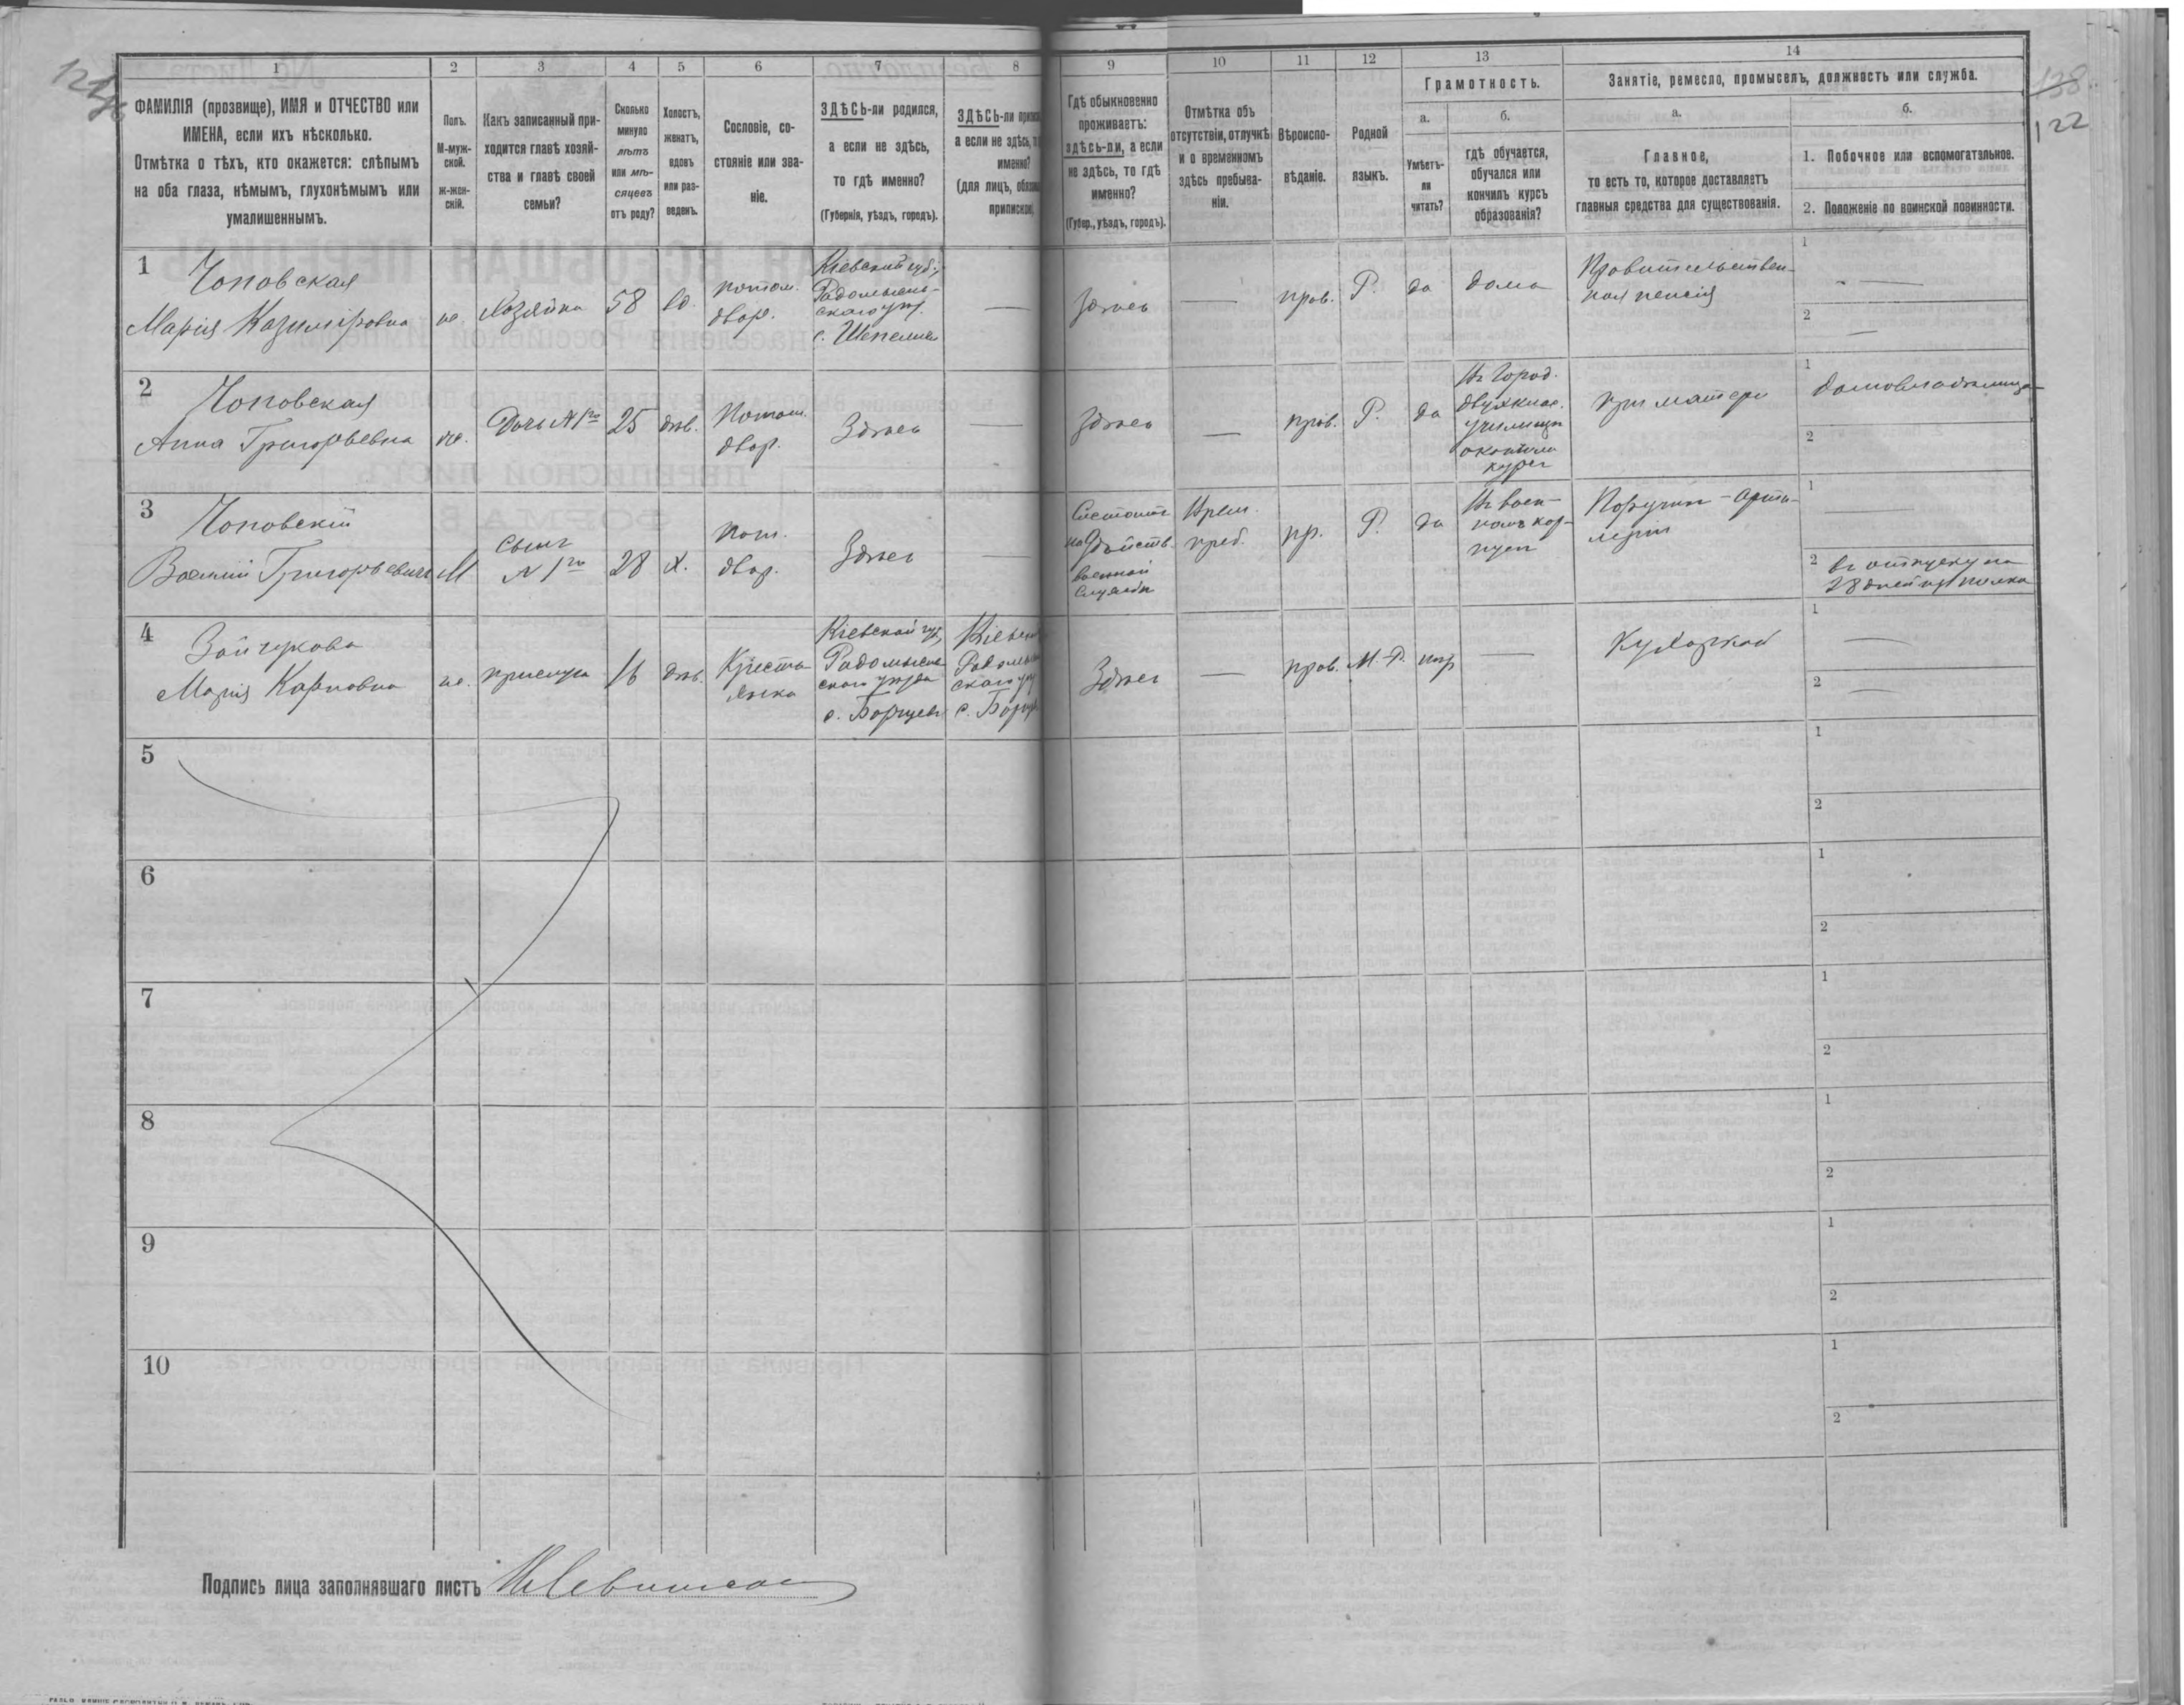 138
122
1
ФАМИЛІЯ (прозвище), ИМЯ и ОТЧЕСТВО или
ИМЕНА, если ихъ нѣсколько.
Отмѣтка о тѣхъ, кто окажется: слѣпымъ
на оба глаза, нѣмымъ, глухонѣмымъ или
умалишеннымъ.
2
Полъ.
М-муж-
ской.
ж-жен-
скій.
3
Какъ записанный при-
ходится главѣ хозяй-
ства и главѣ своей
семьи?
4
Сколько
минуло
лѣтъ
или мѣ-
сяцевъ
отъ роду?
5
Холостъ,
женатъ,
вдовъ
или раз-
веденъ.
6
Сословіе, со-
стояніе или зва-
ніе.
7
ЗДѢСЬ-ли родился,
а если не здѣсь,
то гдѣ именно?
(Губернія, уѣздъ, городъ).
8
ЗДѢСЬ-ли
а если не здѣсь,
именно?
(для лицъ,
9
Гдѣ обыкновенно
проживаетъ:
здѣсь-ли, а если
не здѣсь, то гдѣ
именно?
(Губер., уѣздъ, городъ).
10
Отмѣтка объ
отсутствіи, отлучкѣ
и о временномъ
здѣсь пребыва-
ніи.
11
Вѣроиспо-
вѣданіе.
12
Родной
языкъ.
13
Грамотность.
а.
Умѣетъ-
ли
читать?
б.
гдѣ обучается,
обучался или
кончилъ курсъ
образованія?
14
Занятіе, ремесло, промыселъ, должность или служба.
а.
Главное,
то есть то, которое доставляетъ
главныя средства для существованія.
б.
1. Побочное или вспомогательное.
2. Положеніе по воинской повинности.
1
Чоповская
Марія Казиміровна
же.
Хозяйка
58
вд.
потом.
двор.
Кіевской губ.,
Радомысль-
скаго уѣз.
с. Шепеличи
—
Здѣсь
—
прав.
Р.
да
дома
Правительствен-
ная пенсія
1
—
2
—
2
Чоповская
Анна Григорьевна
же.
Дочь № 1го
25
дѣв.
Потом.
двор.
Здѣсь
—
Здѣсь
—
прав.
Р.
да
Въ Город.
двухклас.
училищѣ
окончила
курсъ
при матери
1
домовладѣлица
2
3
Чоповскій
Василій Григорьевичъ
М
Сынъ
№ 1го
28
х.
пот.
двор.
Здѣсь
—
Состоитъ
на дѣйств.
военной
службѣ
Врем.
преб.
пр.
Р.
да
Въ воен-
номъ кор-
пусѣ
Поручикъ - арти-
леріи
1
—
2 въ отпуску на
28 дней
4
Зайчукова
Марія Карповна
же.
прислуга
16
дѣв.
Кресть-
янка
Кіевской губ,
Радомысль-
скаго уѣзда
с. Борщевъ
Кіевск
Радомы
скаго у
с. Борщ
Здѣсь
—
прав.
М.-Р.
нѣт
—
Кухаркой
1
—
2
—
5
1
2
6
1
2
7
1
2
8
1
2
9
1
2
10
1
2
Подпись лица заполнявшаго листъ